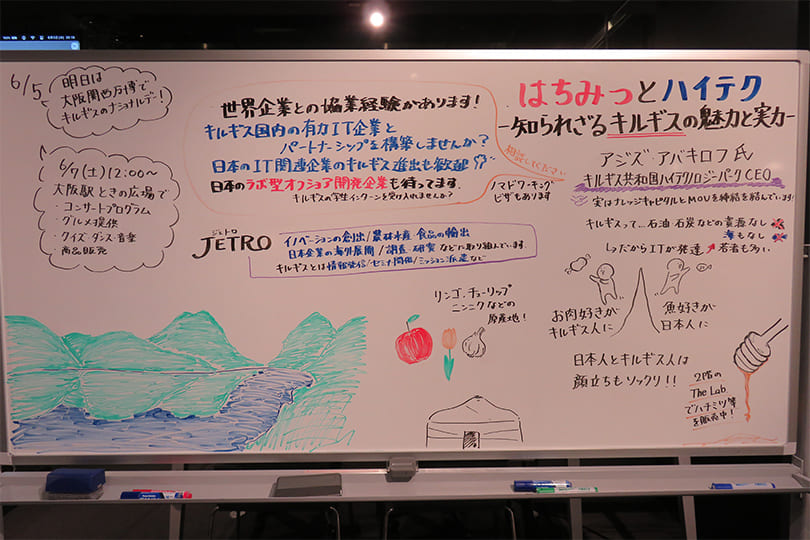 はちみつとハイテク
-知られざるキルギスの魅力と実力-
アジズ・アバキロフ氏
キルギス共和国ハイテクロジーパークCEO
実はナレッジキャピタルとMOUを締結を結んでいます!
キルギスって…石油石炭などの資源なし
海もなし
↳だからITが発達↗若者も多い
お肉好きが
キルギス人に
魚好きが
日本人に
日本人とキルギス人は
顔立ちもソックリ!!
2階の
The Lab.
でハチミツ等
を販売中!
世界企業との協業経験があります!
キルギス国内の有力IT企業と
パートナーシップを構築しませんか?
日本のIT関連企業のキルギス進出も歓迎
日本のラボ型オフショア開発企業も待ってます。
キルギスの学生インターンを受け入れませんか?
相談してください
ノマドワーキング
ビザもあります
ジェトロ
JETRO
イノベーションの創出/農林水産・食品の輸出
日本企業の海外展開/調査・研究 などに取り組んでいます。
キルギスとは情報発信/セミナー開催/ミッション派遣など
リンゴ、チューリップ
ニンニクなどの
原産地!
6/5
明日は
大阪関西万博で
キルギスのナショナルデー!
6/7(土)12:00〜
大阪駅 ときの広場で
・コンサートプログラム
・グルメ提供
・クイズ ダンス・音楽
・商品販売